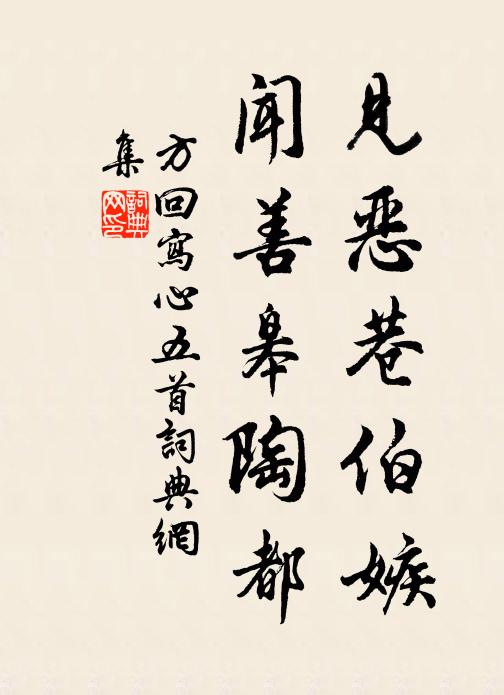 見惡巷伯嫉
聞善皋陶都
方回寫心五首詞典網
集
詞典網印